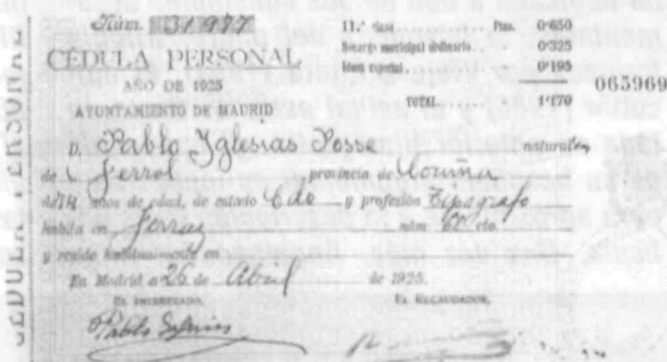 CÉDULA PERSONAL
Núm. 31977
CÉDULA PERSONAL
AÑO DE 1925
AYUNTAMIENTO DE MADRID
11.ª clase Ptas. 0'650
Recargo municipal ordinario.. 0'325
Idem especial. 0'195
TOTAL 1'170
065969
D. Pablo Yglesias Posse natural
de Ferrol provincia de Coruña
de 74 años de edad, de estado Cdo y profesión Tipografo
habita en Ferraz núm 68 cto.
y reside habitualmente en
En Madrid a 26 de Abril de 1925.
EL INTERESADO, EL RECAUDADOR,
Pablo Iglesias